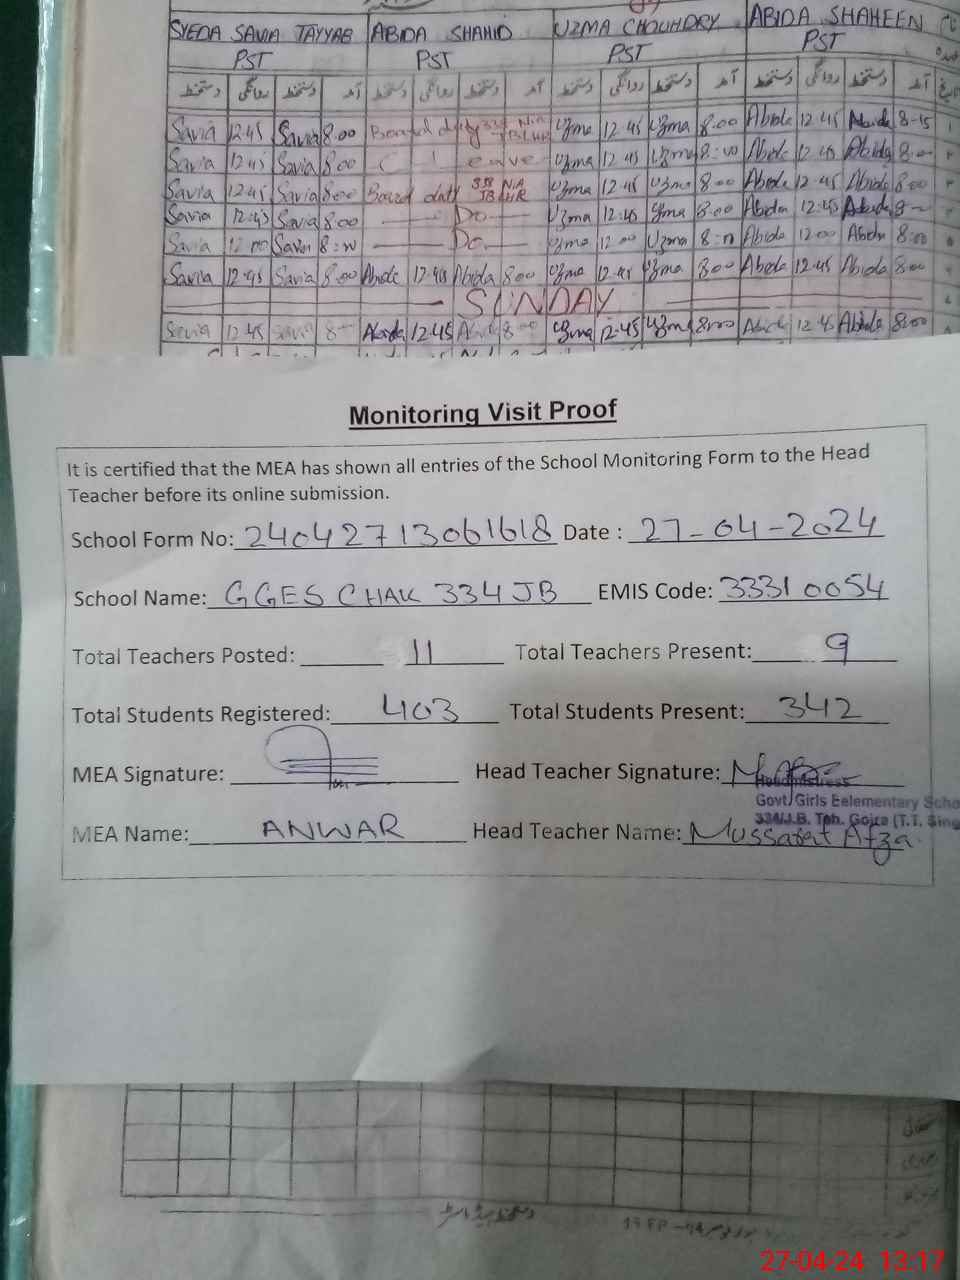 SYEDA SAVIA TAYYAB ABIDA SHAHID UZMA CHOUHDRY ABIDA SHAHEEN
PST PST PST PST
دستخط روانگی دستخط آمد دستخط روانگی دستخط آمد دستخط روانگی دستخط آمد دستخط روانگی دستخط آمد
Savia 12:45 Savia 8:00 Board duty Uzma 12:45 Uzma 8:00 Abida 12:45 Abida 8-15
Savia 12:45 Savia 8:00 C leave Uzma 12:45 Uzma 8:00 Abida 12:45 Abida 8:00
Savia 12:45 Savia 8:00 Board duty 338 JB Uzma 12:45 Uzma 8:00 Abida 12:45 Abida 8:00
Savia 12:45 Savia 8:00 Do Uzma 12:45 Uzma 8:00 Abida 12:45 Abida
Savia 12:00 Savia 8:00 Do Uzma 12:00 Uzma 8:00 Abida 12:00 Abida 8:00
Savia 12:45 Savia 8:00 Abida 12:45 Abida 8:00 Uzma 12:45 Uzma 8:00 Abida 12:45 Abida 8:00
SUNDAY
Savia 12:45 Savia Abida 12:45 Abida 8:00 Uzma 12:45 Uzma 8:00 Abida 12:45 Abida 8:00
Monitoring Visit Proof
It is certified that the MEA has shown all entries of the School Monitoring Form to the Head
Teacher before its online submission.
School Form No: 24042713061618 Date : 27-04-2024
School Name: GGES CHAK 334 JB EMIS Code: 33310054
Total Teachers Posted: 11 Total Teachers Present: 9
Total Students Registered: 403 Total Students Present: 342
MEA Signature: Head Teacher Signature:
Headmistress
Govt. Girls Eelementary Scho
334/J.B. Teh. Gojra (T.T. Sing
MEA Name: ANWAR Head Teacher Name: Mussarat Afza
27-04-24 13:17